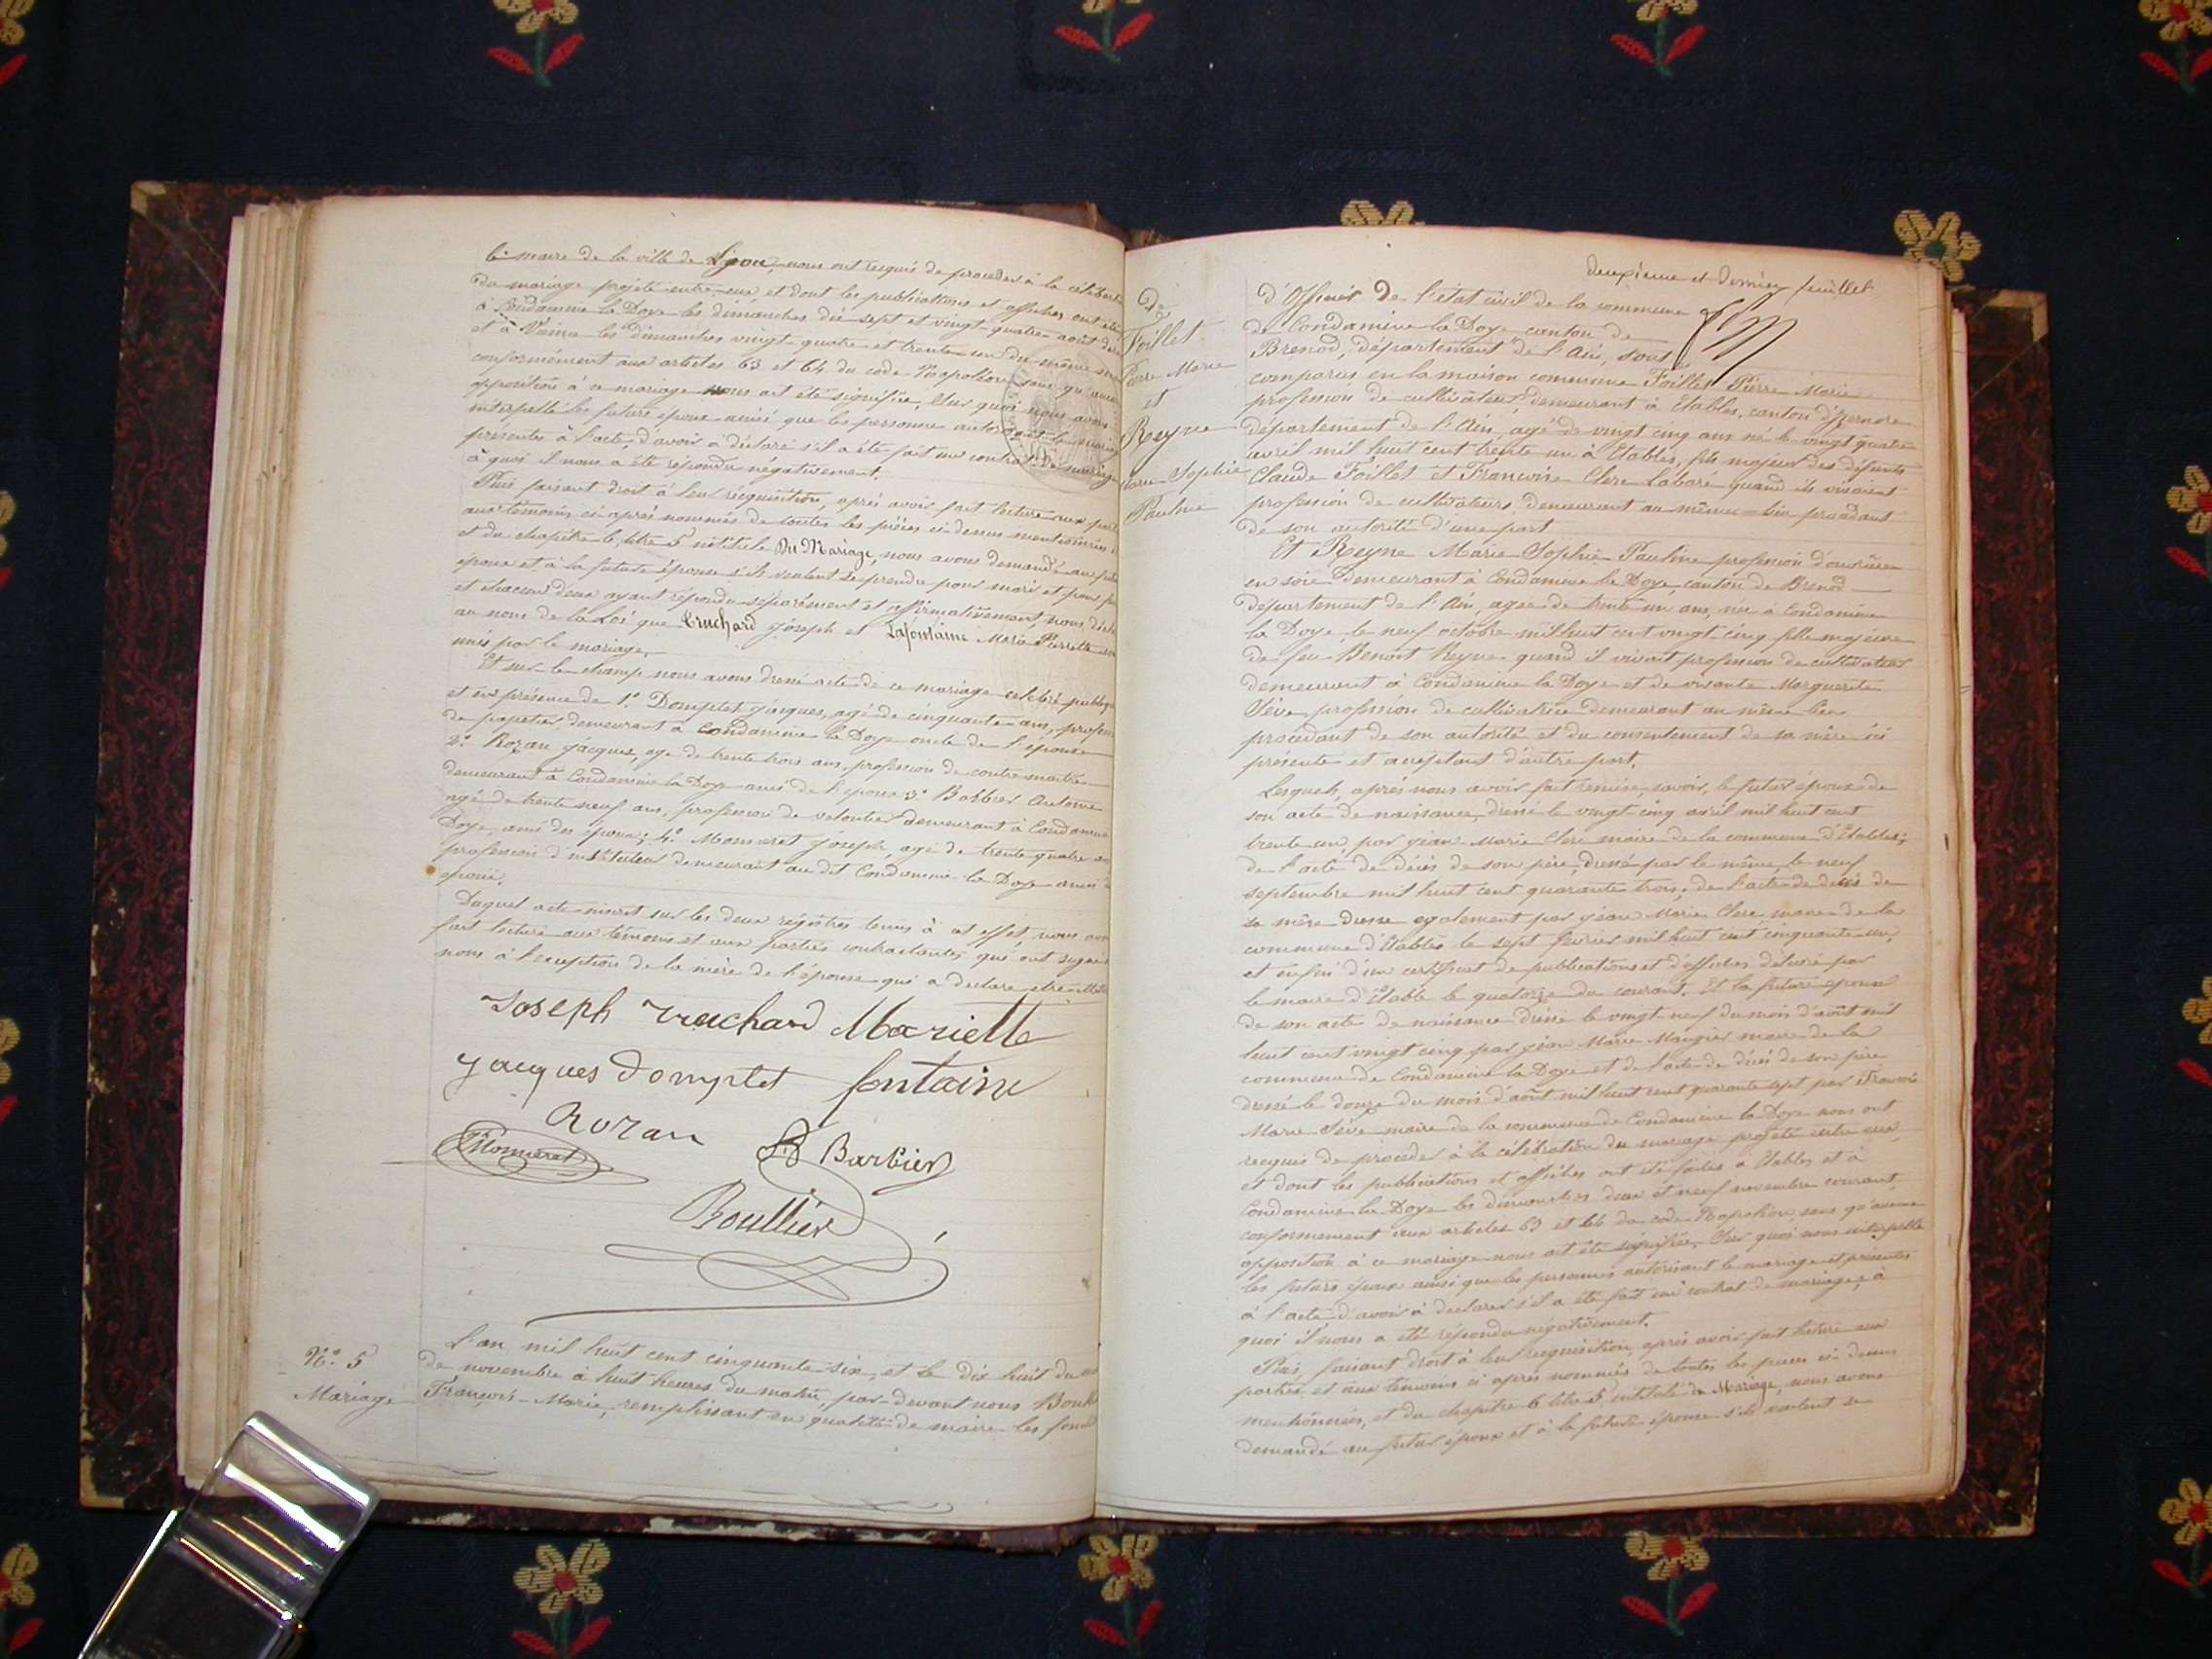 le maire de la ville de Lyon, nous ont requis de procéder à la célébrat
du mariage projeté entre eux et dont les publications et affiches ont été
à Condamine la Doye les dimanches dix sept et vingt-quatre août
et à Vaise les dimanches vingt-quatre et trente un du même
conformément aux articles 63 et 64 du code Napoléon, sans qu'aucune
opposition à ce mariage nous ait été signifiée, Sur quoi nous avons
interpellé les futurs époux ainsi que les personnes autorisant le mariage
présentes à l'acte, d'avoir à déclaré s'il a été fait un contrat de mariage
à quoi il nous a été répondu négativement.
Puis faisant droit à leur réquisition, après avoir fait lecture aux part
aux témoins ci-après nommés de toutes les pièces ci-dessus mentionnées
et du chapitre 6, titre 5 intitulé Du Mariage, nous avons demandé au futur
époux et à la future épouse s'ils veulent se prendre pour mari et pour
et chacun d'eux ayant répondu séparément et affirmativement, nous décl
au nom de la Loi que Truchard Joseph et Lafontaine Marie Pierrette
unis par le mariage.
Et sur le champ nous avons dressé acte de ce mariage célébré publiq
et en présence de 1° Domptet Jacques, agé de cinquante ans, profess
de papetier demeurant à Condamine la Doye oncle de l'épouse
2° Rozan Jacques, agé de trente trois ans, profession de contre maitre
demeurant à Condamine la Doye ami de l'époux 3° Barbier Antoine
agé de trente neuf ans, profession de veloutier demeurant à Condamine
Doye, ami des époux; 4° Monneret Joseph, agé de trente quatre ans
profession d'instituteur demeurant au dit Condamine la Doye ami
époux.
Duquel acte inscrit sur les deux registres tenus à cet effet, nous avons
fait lecture aux témoins et aux parties contractantes, qui ont signé
nous à l'exception de la mère de l'épouse qui a declare etre
Joseph Truchard Mariette
Jacques Domptet fontaine
Rozan
Monneret
Barbier
Boullier
N°. 5
Mariage
L'an mil huit cent cinquante-six, et le dix huit du
de novembre à huit heures du matin, par-devant nous Boull
François-Marie, remplissant en qualité de maire les fonct
deuxième et dernier feuillet
De
Foillet
Pierre Marie
et
Reyne
Marie Sophie
Pauline
d'Officier de l'état civil de la commune
de Condamine la Doye canton de
Brenod, département de l'Ain, sont
comparus en la maison commune Foillet Pierre Marie
profession de cultivateur, demeurant à Etables, canton d'Izernore
département de l'Ain, agé de vingt cinq ans né le vingt quatre
avril mil huit cent trente un à Etables, fils majeur des défunts
Claude Foillet et Françoise Clerc Labare quand ils vivaient
profession de cultivateurs, demeurant au même lieu procédant
de son autorité d'une part
Et Reyne Marie Sophie Pauline profession d'ouvrière
en soie demeurant à Condamine la Doye, canton de Brenod
département de l'Ain, agée de trente un ans, née à Condamine
la Doye le neuf octobre mil huit cent vingt cinq fille majeure
de feu Benoit Reyne quand il vivait profession de cultivateur
demeurant à Condamine la Doye et de vivante Marguerite
Sève, profession de cultivatrice demeurant au même lieu
procédant de son autorité et du consentement de sa mère ici
présente et acceptant d'autre part.
Lesquels, après nous avoir fait remise, savoir, le futur époux de
son acte de naissance, dressé le vingt-cinq avril mil huit cent
trente un, par Jean Marie Clerc maire de la commune d'Etables;
de l'acte de décès de son père, dressé par le même, le neuf
septembre mil huit cent quarante trois; de l'acte de décès de
sa mère dressé egalement par Jean Marie Clerc, maire de la
commune d'Etables le sept février mil huit cent cinquante un,
et enfin d'un certificat de publications et d'affiches délivré par
le maire d'Etable le quatorze du courant. Et la future epouse
de son acte de naissance dressé le vingt-neuf du mois d'août mil
huit cent vingt cinq par Jean Marie Maugier maire de la
commune de Condamine la Doye et de l'acte de décès de son père
dressé le douze du mois d'août mil huit cent quarante sept par François
Marie Sève maire de la commune de Condamine la Doye nous ont
requis de procéder à la célébration du mariage projeté entre eux,
et dont les publications et affiches ont été faites à Etables et à
Condamine la Doye les dimanches deux et neuf novembre courant,
conformément aux articles 63 et 64 du code Napoléon, sans qu'aucune
opposition à ce mariage nous ait été signifiée, Sur quoi nous interpellé
les futurs époux ainsi que les personnes autorisant le mariage et présentes
à l'acte d'avoir à declarer s'il a été fait un contrat de mariage, à
quoi il nous a été répondu négativement.
Puis, faisant droit à leur réquisition, après avoir fait lecture aux
parties et aux témoins ci après nommés de toutes les pièces ci-dessus
mentionnées, et du chapitre 6 titre 5 intitulé du Mariage, nous avons
demandé au futur époux et à la future épouse s'ils veulent se